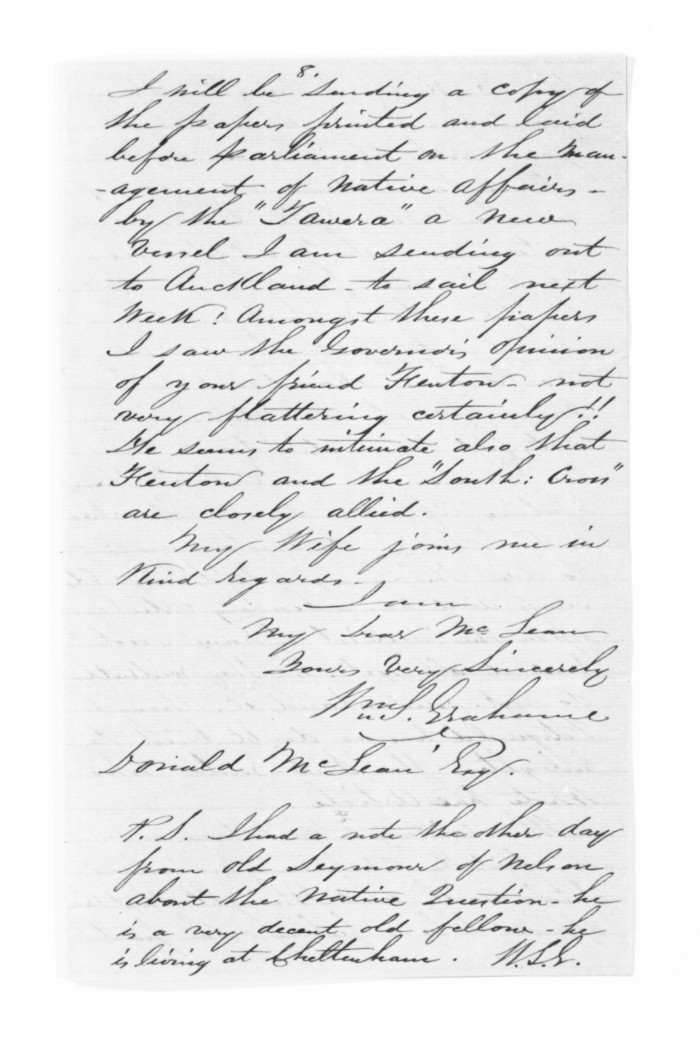 8.
I will be sending a copy of
the papers printed and laid
before parliament on the Man-
-agement of Native Affairs -
by the "Tawera" a new
Vessel I am sending out
to Auckland - to sail next
Week! Amongst these papers
I saw the Governor's opinion
of your friend Fenton - not
very flattering certainly!!
He seems to intimate also that
Fenton and the "South: Cross"
are closely allied.
My Wife joins me in
Kind regards -
I am
My Dear McLean
Yours Very Sincerely
Wm S. Grahame
Donald McLean Esq.
P.S. I had a note the other day
from old Seymour of Nelson
about the Native Question - he
is a very decent old fellow - he
is living at Cheltenham. W.S.G.